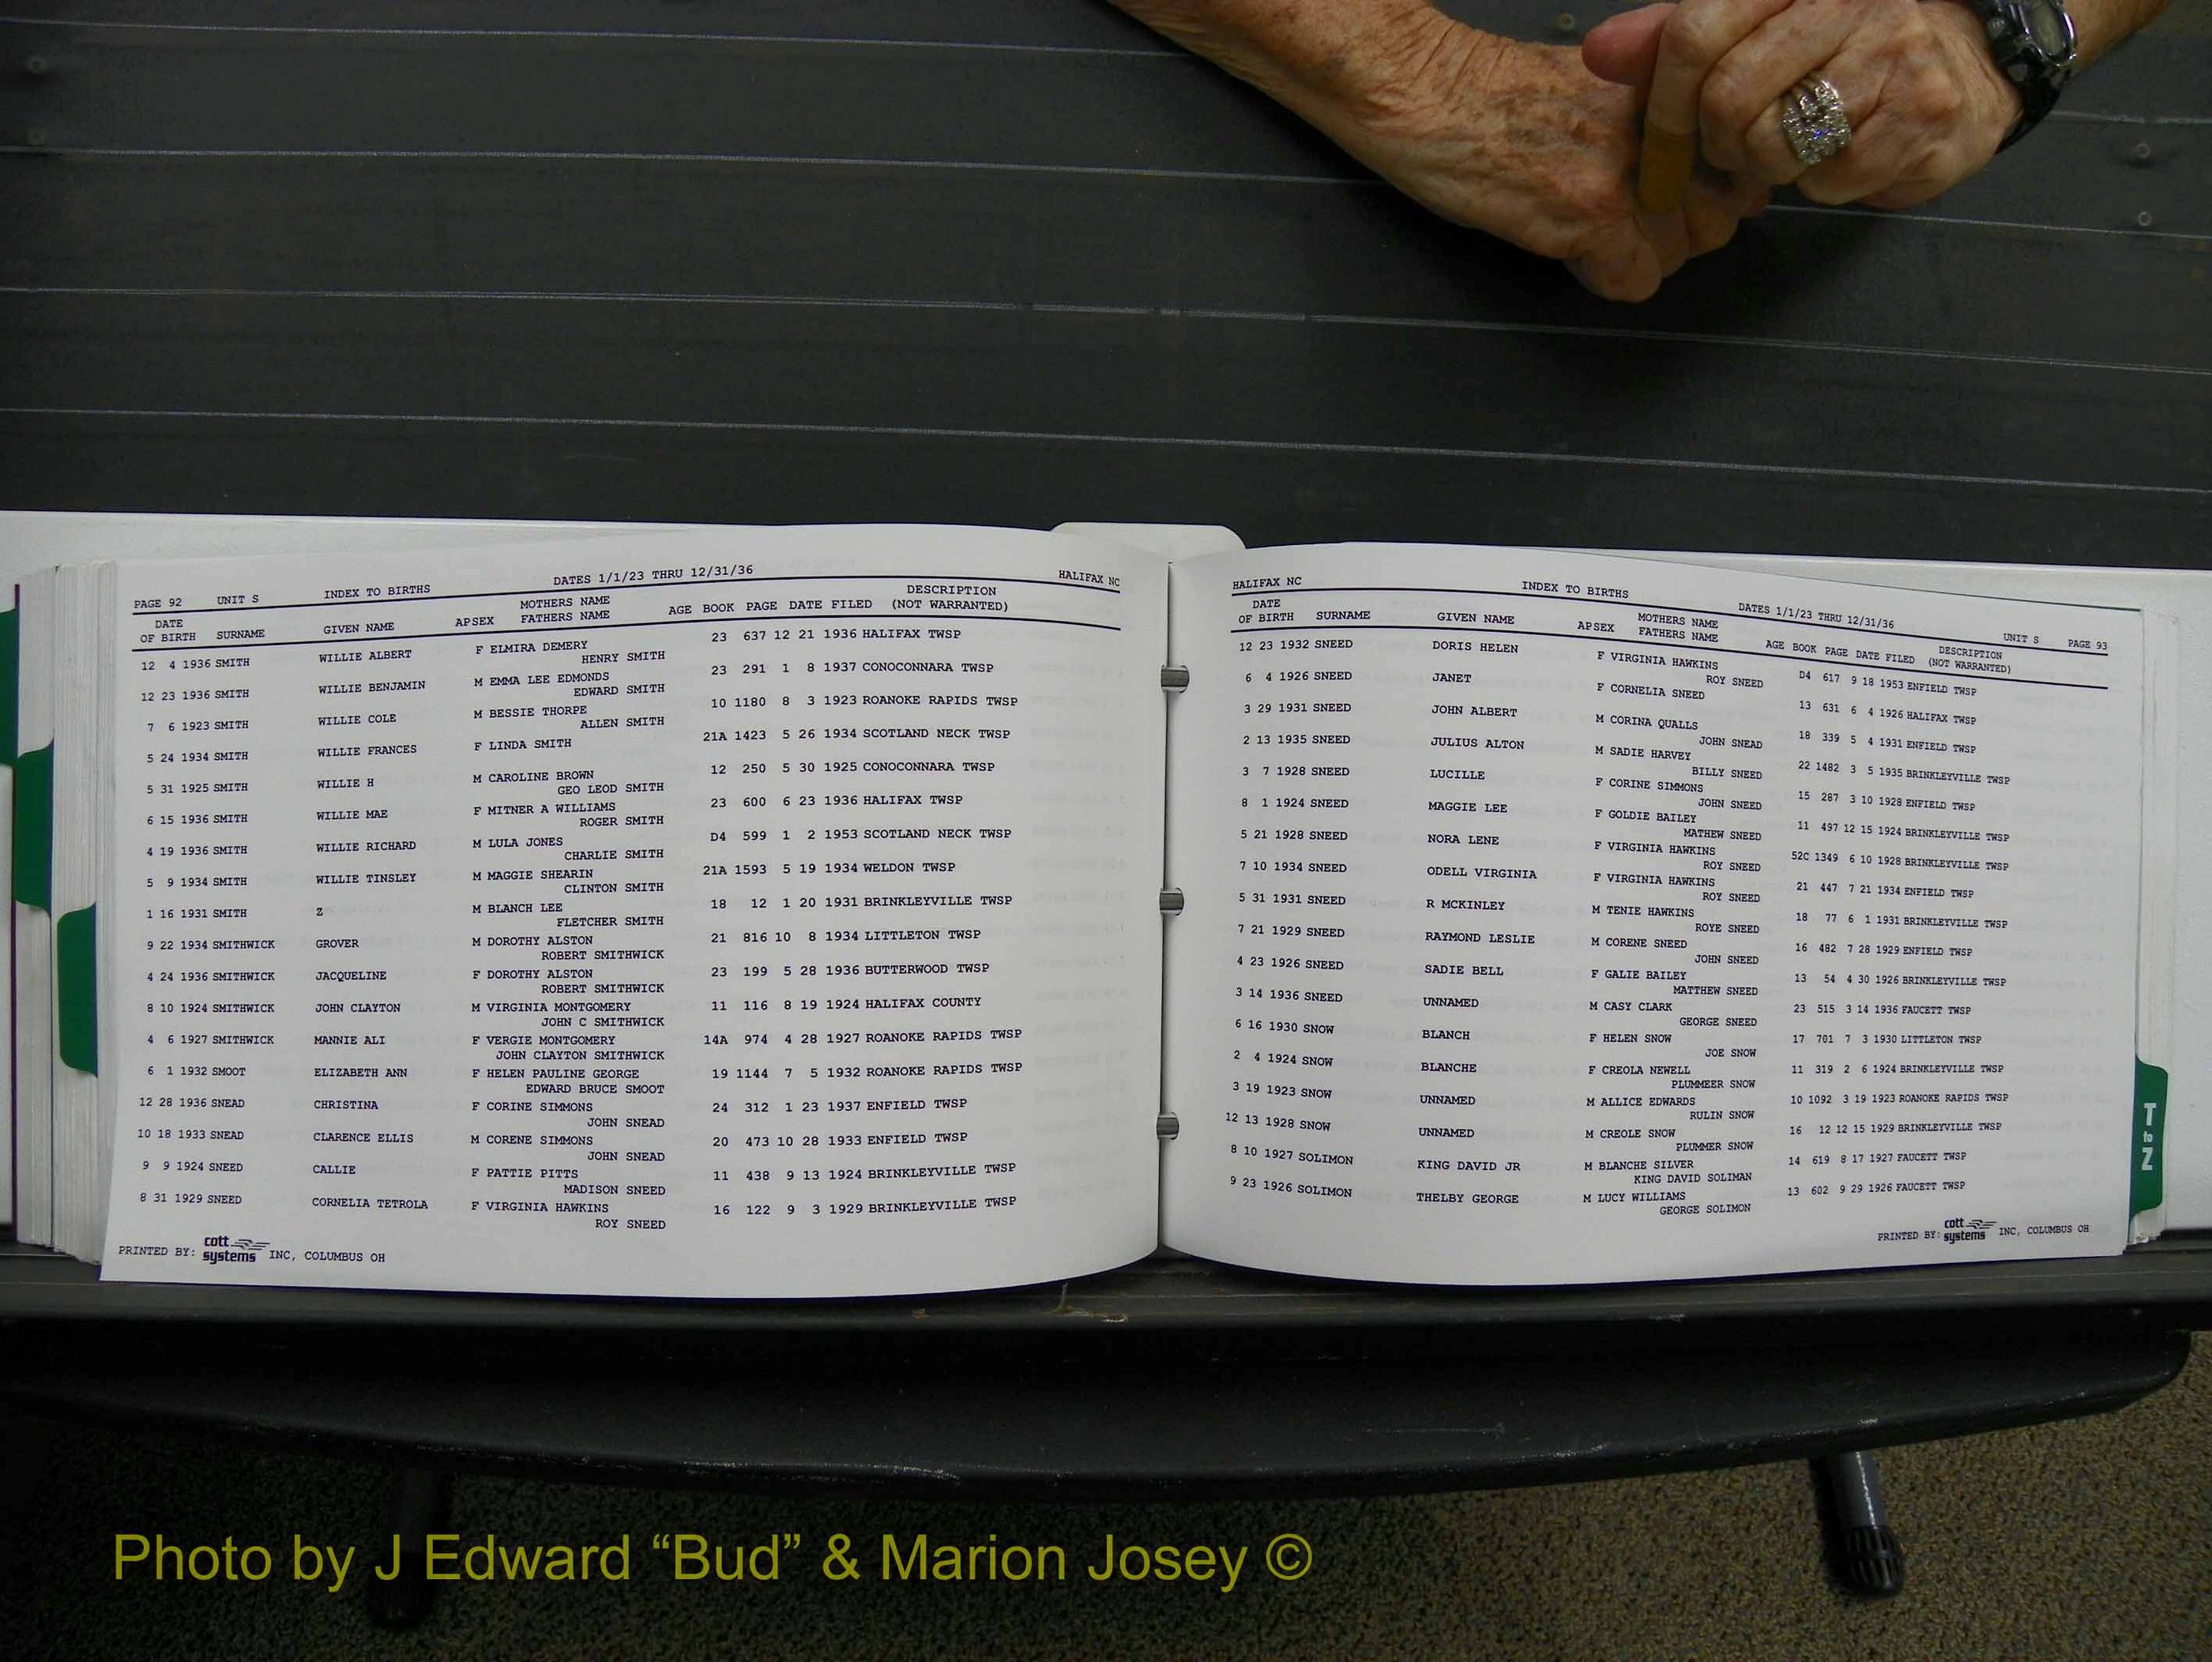 PAGE 92 UNIT S INDEX TO BIRTHS DATES 1/1/23 THRU 12/31/36 HALIFAX NC
DATE OF BIRTH SURNAME GIVEN NAME APSEX MOTHERS NAME FATHERS NAME AGE BOOK PAGE DATE FILED DESCRIPTION (NOT WARRANTED)
12 4 1936 SMITH WILLIE ALBERT F ELMIRA DEMERY 23 637 12 21 1936 HALIFAX TWSP
HENRY SMITH
12 23 1936 SMITH WILLIE BENJAMIN M EMMA LEE EDMONDS 23 291 1 8 1937 CONOCONNARA TWSP
EDWARD SMITH
7 6 1923 SMITH WILLIE COLE M BESSIE THORPE 10 1180 8 3 1923 ROANOKE RAPIDS TWSP
ALLEN SMITH
5 24 1934 SMITH WILLIE FRANCES F LINDA SMITH 21A 1423 5 26 1934 SCOTLAND NECK TWSP
5 31 1925 SMITH WILLIE H M CAROLINE BROWN 12 250 5 30 1925 CONOCONNARA TWSP
GEO LEOD SMITH
6 15 1936 SMITH WILLIE MAE F MITNER A WILLIAMS 23 600 6 23 1936 HALIFAX TWSP
ROGER SMITH
4 19 1936 SMITH WILLIE RICHARD M LULA JONES D4 599 1 2 1953 SCOTLAND NECK TWSP
CHARLIE SMITH
5 9 1934 SMITH WILLIE TINSLEY M MAGGIE SHEARIN 21A 1593 5 19 1934 WELDON TWSP
CLINTON SMITH
1 16 1931 SMITH Z M BLANCH LEE 18 12 1 20 1931 BRINKLEYVILLE TWSP
FLETCHER SMITH
9 22 1934 SMITHWICK GROVER M DOROTHY ALSTON 21 816 10 8 1934 LITTLETON TWSP
ROBERT SMITHWICK
4 24 1936 SMITHWICK JACQUELINE F DOROTHY ALSTON 23 199 5 28 1936 BUTTERWOOD TWSP
ROBERT SMITHWICK
8 10 1924 SMITHWICK JOHN CLAYTON M VIRGINIA MONTGOMERY 11 116 8 19 1924 HALIFAX COUNTY
JOHN C SMITHWICK
4 6 1927 SMITHWICK MANNIE ALI F VERGIE MONTGOMERY 14A 974 4 28 1927 ROANOKE RAPIDS TWSP
JOHN CLAYTON SMITHWICK
6 1 1932 SMOOT ELIZABETH ANN F HELEN PAULINE GEORGE 19 1144 7 5 1932 ROANOKE RAPIDS TWSP
EDWARD BRUCE SMOOT
12 28 1936 SNEAD CHRISTINA F CORINE SIMMONS 24 312 1 23 1937 ENFIELD TWSP
JOHN SNEAD
10 18 1933 SNEAD CLARENCE ELLIS M CORENE SIMMONS 20 473 10 28 1933 ENFIELD TWSP
JOHN SNEAD
9 9 1924 SNEED CALLIE F PATTIE PITTS 11 438 9 13 1924 BRINKLEYVILLE TWSP
MADISON SNEED
8 31 1929 SNEED CORNELIA TETROLA F VIRGINIA HAWKINS 16 122 9 3 1929 BRINKLEYVILLE TWSP
ROY SNEED
PRINTED BY: cott systems INC, COLUMBUS OH
HALIFAX NC INDEX TO BIRTHS DATES 1/1/23 THRU 12/31/36 UNIT S PAGE 93
DATE OF BIRTH SURNAME GIVEN NAME APSEX MOTHERS NAME FATHERS NAME AGE BOOK PAGE DATE FILED DESCRIPTION (NOT WARRANTED)
12 23 1932 SNEED DORIS HELEN F VIRGINIA HAWKINS D4 617 9 18 1953 ENFIELD TWSP
ROY SNEED
6 4 1926 SNEED JANET F CORNELIA SNEED 13 631 6 4 1926 HALIFAX TWSP
3 29 1931 SNEED JOHN ALBERT M CORINA QUALLS 18 339 5 4 1931 ENFIELD TWSP
JOHN SNEAD
2 13 1935 SNEED JULIUS ALTON M SADIE HARVEY 22 1482 3 5 1935 BRINKLEYVILLE TWSP
BILLY SNEED
3 7 1928 SNEED LUCILLE F CORINE SIMMONS 15 287 3 10 1928 ENFIELD TWSP
JOHN SNEED
8 1 1924 SNEED MAGGIE LEE F GOLDIE BAILEY 11 497 12 15 1924 BRINKLEYVILLE TWSP
MATHEW SNEED
5 21 1928 SNEED NORA LENE F VIRGINIA HAWKINS 52C 1349 6 10 1928 BRINKLEYVILLE TWSP
ROY SNEED
7 10 1934 SNEED ODELL VIRGINIA F VIRGINIA HAWKINS 21 447 7 21 1934 ENFIELD TWSP
ROY SNEED
5 31 1931 SNEED R MCKINLEY M TENIE HAWKINS 18 77 6 1 1931 BRINKLEYVILLE TWSP
ROYE SNEED
7 21 1929 SNEED RAYMOND LESLIE M CORENE SNEED 16 482 7 28 1929 ENFIELD TWSP
JOHN SNEED
4 23 1926 SNEED SADIE BELL F GALIE BAILEY 13 54 4 30 1926 BRINKLEYVILLE TWSP
MATTHEW SNEED
3 14 1936 SNEED UNNAMED M CASY CLARK 23 515 3 14 1936 FAUCETT TWSP
GEORGE SNEED
6 16 1930 SNOW BLANCH F HELEN SNOW 17 701 7 3 1930 LITTLETON TWSP
JOE SNOW
2 4 1924 SNOW BLANCHE F CREOLA NEWELL 11 319 2 6 1924 BRINKLEYVILLE TWSP
PLUMMEER SNOW
3 19 1923 SNOW UNNAMED M ALLICE EDWARDS 10 1092 3 19 1923 ROANOKE RAPIDS TWSP
RULIN SNOW
12 13 1928 SNOW UNNAMED M CREOLE SNOW 16 12 12 15 1929 BRINKLEYVILLE TWSP
PLUMMER SNOW
8 10 1927 SOLIMON KING DAVID JR M BLANCHE SILVER 14 619 8 17 1927 FAUCETT TWSP
KING DAVID SOLIMAN
9 23 1926 SOLIMON THELBY GEORGE M LUCY WILLIAMS 13 602 9 29 1926 FAUCETT TWSP
GEORGE SOLIMON
PRINTED BY: cott systems INC, COLUMBUS OH
T to Z
Photo by J Edward “Bud” & Marion Josey ©